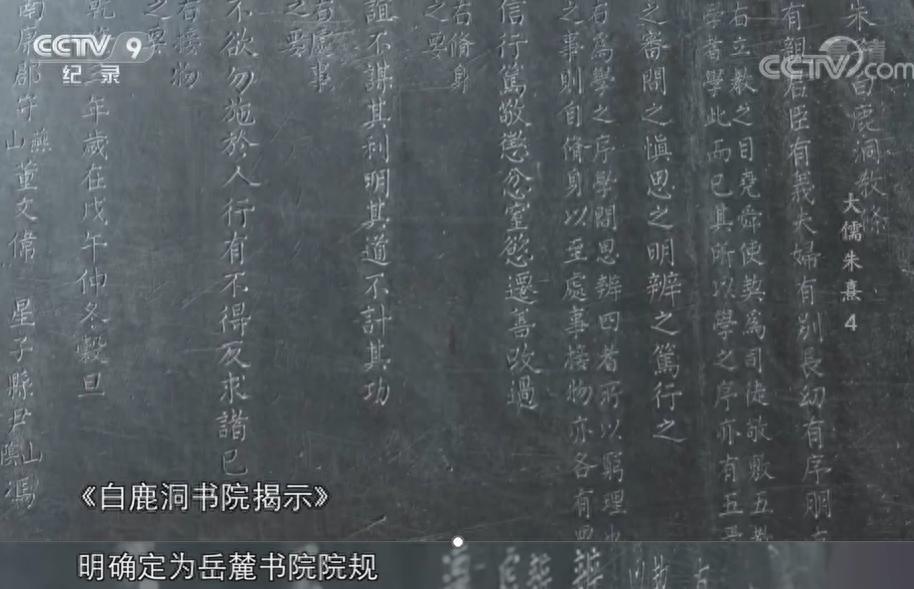 CCTV 9
纪录
CCTV com
大儒朱熹 4
白鹿洞教條
有親君臣有義夫婦有別長幼有序朋
右立教之目堯舜使契為司徒敬敷五教
學者學此而已其所以學之序亦有五焉
之審問之慎思之明辨之篤行之
右為學之序學問思辨四者所以窮理也
之事則自脩身以至處事接物亦各有
信行篤敬懲忿窒慾遷善改過
右脩身
之要
誼不謀其利明其道不計其功
右處事
之要
不欲勿施於人行有不得反求諸己
右接物
之要
年歲在戊午仲冬穀旦
南康郡守燕山董文偉 星子縣尹
《白鹿洞书院揭示》
明确定为岳麓书院院规